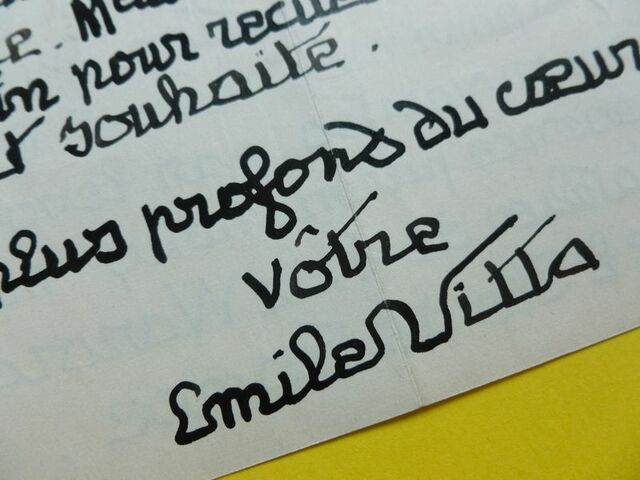 e. Ma
in pour recue
t souhaité.
plus profond du cœur
vôtre
Emile Villa